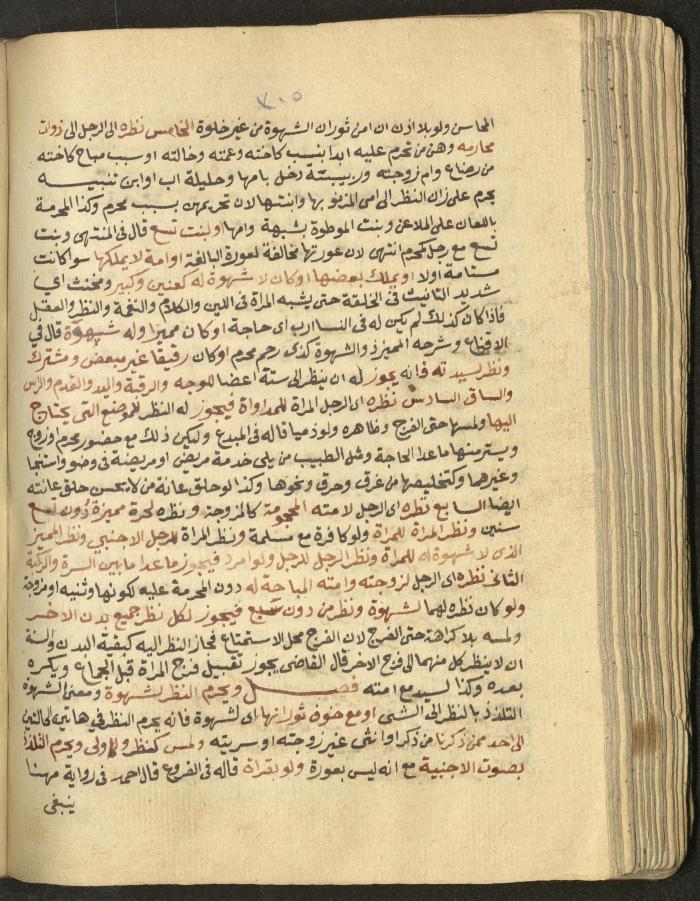 ٢٠٥
المحاسن ولو بلا اذن ان امن ثوران الشهوة من غير خلوة الخامس نظره اي الرجل الى ذوات
محارمه وهن من تحرم عليه ابدا بنسب كاخته وعمته وخالته او سبب مباح كاخته
من رضاع وام زوجته وربيبة دخل بامها وحليلة اب او ابن تنبيه
يحرم على زان النظر الى امي المزنى بها وابنتها لان تحريمهن بسبب محرم وكذا المحرمة
باللعان على الملاعن وبنت الموطوة بشبهة وامها او لبنت تسع قال في المنتهى وبنت
تسع مع رجل كمحرم انتهى لان عورتها مخالفة لعورة البالغة او امة لا يملكها سوا كانت
مستامة او لا او يملك بعضها او كان لا شهوة له كعنين وكبير ومخنث اي
شديد التانيث في الخلقة حتى يشبه المراة في اللين والكلام والنغمة والنظر والعقل
فاذا كان كذلك لم يكن له في النسا ارب اي حاجة او كان مميزا وله شهوة قال في
الاقناع وشرحه المميز ذو الشهوة كذي رحم محرم او كان رقيقا غير مبعض ومشترك
ونظر لسيدته فانه يجوز له ان ينظر الى ستة اعضا للوجه والرقبة واليد والقدم والراس
والساق السادس نظره اي الرجل المراة للمداواة فيجوز له النظر للموضع التي يحتاج
اليها ولمسها حتى الفرج وظاهره ولو ذميا قاله في المبدع وليكن ذلك مع حضور محرم او زوج
ويستر منها ما عدا الحاجة ومثل الطبيب من يلي خدمة مريض او مريضة في وضو واستنجا
وغيرهما وكتخليصها من غرق وحرق ونحوها وكذا لو حلق عانة من لا يحسن حلق عانته
ايضا السابع نظره اي الرجل لامته المحرمة كالمزوجة ونظره لحرة مميزة دون تسع
سنين ونظر المراة للمراة ولو كافرة مع مسلمة ونظر المراة للرجل الاجنبي ونظر المميز
الذي لا شهوة له للمراة ونظر الرجل للرجل ولو امرد فيجوز ما عدا ما بين السرة والركبة
الثامن نظره اي الرجل لزوجته وامته المباحة له دون المحرمة عليه لكونها وثنية او مزوجة
ولو كان نظره لهما لشهوة ونظر من دون سبع فيجوز لكل نظر جميع بدن الاخر
ولمسه بلا كراهة حتى الفرج لان الفرج محل الاستمتاع فجاز النظر اليه كبقية البدن والسنة
ان لا ينظر كل منهما الى فرج الاخر قال القاضي يجوز تقبيل فرج المراة قبل الجماع ويكره
بعده وكذا لسيد مع امته فصل ويحرم النظر لشهوة ومعنى الشهوة
التلذذ بالنظر الى الشي او مع خوف ثورانها اي لشهوة فانه يحرم النظر في هاتين الحالتين
الى احد ممن ذكرنا من ذكر او انثى غير زوجته او سريته ولمس كنظر واولى ويحرم التلذذ
بصوت الاجنبية مع انه ليس بعورة ولو بقراة قاله في الفروع قال احمد في رواية مهنا
ينبغي